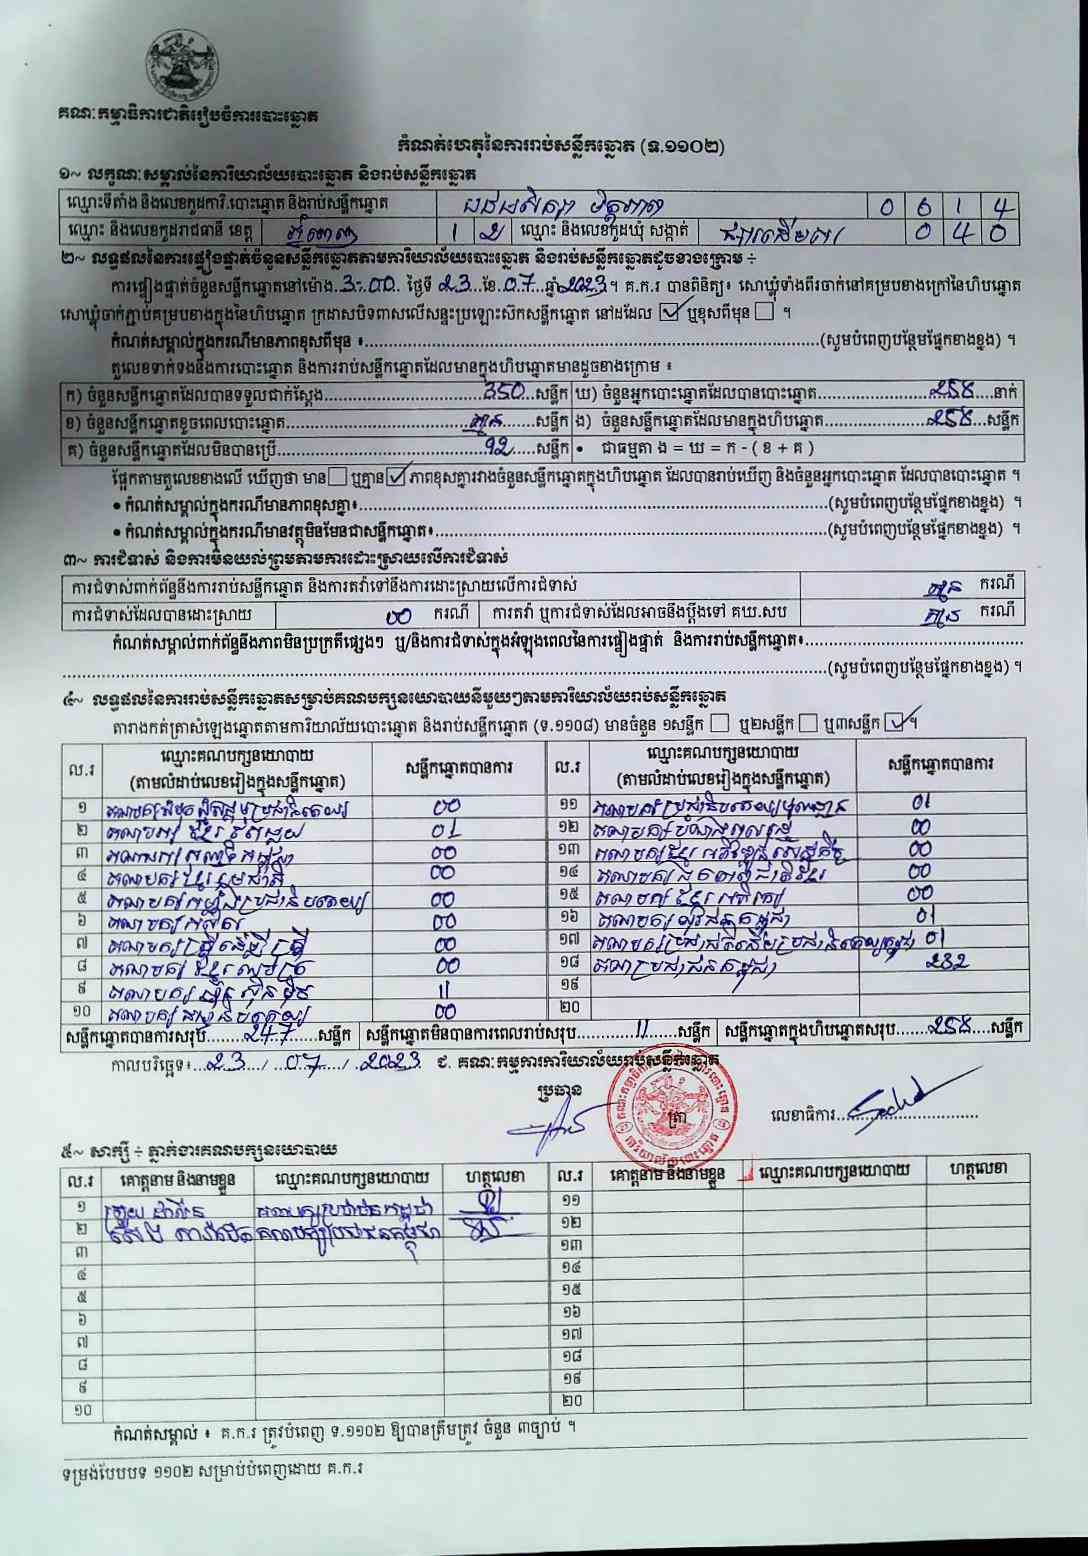 គណៈកម្មាធិការជាតិរៀបចំការបោះឆ្នោត
កំណត់ហេតុនៃការរាប់សន្លឹកឆ្នោត (ទ.១១០២)
១~ លក្ខណៈសម្គាល់នៃការិយាល័យបោះឆ្នោត និងរាប់សន្លឹកឆ្នោត
ឈ្មោះទីតាំង និងលេខកូដការិ.បោះឆ្នោត និងរាប់សន្លឹកឆ្នោត 0 6 1 4
ឈ្មោះ និងលេខកូដរាជធានី ខេត្ត ភ្នំពេញ 1 2 ឈ្មោះ និងលេខកូដឃុំ សង្កាត់ 0 4 0
២~ លទ្ធផលនៃការផ្ទៀងផ្ទាត់ចំនួនសន្លឹកឆ្នោតតាមការិយាល័យបោះឆ្នោត និងរាប់សន្លឹកឆ្នោតដូចខាងក្រោម ÷
ការផ្ទៀងផ្ទាត់ចំនួនសន្លឹកឆ្នោតនៅម៉ោង.3:00. ថ្ងៃទី 23 ខែ.07. ឆ្នាំ2023។ គ.ក.រ បានពិនិត្យ៖ សោឃ្លុំទាំងពីរចាក់នៅគម្របខាងក្រៅនៃហិបឆ្នោត
សោឃ្លុំចាក់ភ្ជាប់គម្របខាងក្នុងនៃហិបឆ្នោត ក្រដាសបិទពាសលើសន្ទះប្រឡោះស៊កសន្លឹកឆ្នោត នៅដដែល ☑ ឬខុសពីមុន ☐ ។
កំណត់សម្គាល់ក្នុងករណីមានភាពខុសពីមុន ៖..........(សូមបំពេញបន្ថែមផ្នែកខាងខ្នង) ។
តួលេខទាក់ទងនឹងការបោះឆ្នោត និងការរាប់សន្លឹកឆ្នោតដែលមានក្នុងហិបឆ្នោតមានដូចខាងក្រោម ៖
ក) ចំនួនសន្លឹកឆ្នោតដែលបានទទួលជាក់ស្តែង..........350..សន្លឹក ឃ) ចំនួនអ្នកបោះឆ្នោតដែលបានបោះឆ្នោត..........258....នាក់
ខ) ចំនួនសន្លឹកឆ្នោតខូចពេលបោះឆ្នោត..........គ្មាន....សន្លឹក ង) ចំនួនសន្លឹកឆ្នោតដែលមានក្នុងហិបឆ្នោត..........258..សន្លឹក
គ) ចំនួនសន្លឹកឆ្នោតដែលមិនបានប្រើ..........92....សន្លឹក • ជាធម្មតា ង = ឃ = ក - ( ខ + គ )
ផ្អែកតាមតួលេខខាងលើ ឃើញថា មាន ☐ ឬគ្មាន ☑ ភាពខុសគ្នារវាងចំនួនសន្លឹកឆ្នោតក្នុងហិបឆ្នោត ដែលបានរាប់ឃើញ និងចំនួនអ្នកបោះឆ្នោត ដែលបានបោះឆ្នោត ។
• កំណត់សម្គាល់ក្នុងករណីមានភាពខុសគ្នា៖..........(សូមបំពេញបន្ថែមផ្នែកខាងខ្នង) ។
• កំណត់សម្គាល់ក្នុងករណីមានវត្ថុមិនមែនជាសន្លឹកឆ្នោត៖..........(សូមបំពេញបន្ថែមផ្នែកខាងខ្នង) ។
៣~ ការជំទាស់ និងការមិនយល់ព្រមតាមការដោះស្រាយលើការជំទាស់
ការជំទាស់ពាក់ព័ន្ធនឹងការរាប់សន្លឹកឆ្នោត និងការតវ៉ាទៅនឹងការដោះស្រាយលើការជំទាស់ គ្មាន ករណី
ការជំទាស់ដែលបានដោះស្រាយ 00 ករណី ការតវ៉ា ឬការជំទាស់ដែលអាចនឹងប្តឹងទៅ គឃ.សប គ្មាន ករណី
កំណត់សម្គាល់ពាក់ព័ន្ធនឹងភាពមិនប្រក្រតីផ្សេងៗ ឬ/និងការជំទាស់ក្នុងអំឡុងពេលនៃការផ្ទៀងផ្ទាត់ និងការរាប់សន្លឹកឆ្នោត៖..........
..........(សូមបំពេញបន្ថែមផ្នែកខាងខ្នង) ។
៤~ លទ្ធផលនៃការរាប់សន្លឹកឆ្នោតសម្រាប់គណបក្សនយោបាយនីមួយៗតាមការិយាល័យរាប់សន្លឹកឆ្នោត
តារាងកត់ត្រាសំឡេងឆ្នោតតាមការិយាល័យបោះឆ្នោត និងរាប់សន្លឹកឆ្នោត (ទ.១១០៨) មានចំនួន ១សន្លឹក ☐ ឬ២សន្លឹក ☐ ឬ៣សន្លឹក ☑ ។
ល.រ ឈ្មោះគណបក្សនយោបាយ (តាមលំដាប់លេខរៀងក្នុងសន្លឹកឆ្នោត) សន្លឹកឆ្នោតបានការ ល.រ ឈ្មោះគណបក្សនយោបាយ (តាមលំដាប់លេខរៀងក្នុងសន្លឹកឆ្នោត) សន្លឹកឆ្នោតបានការ
១ 00 ១១ គណបក្សប្រជាធិបតេយ្យមូលដ្ឋាន 01
២ 01 ១២ 00
៣ 00 ១៣ 00
៤ គណបក្សខ្មែររួមជាតិ 00 ១៤ 00
៥ គណបក្សកម្លាំងប្រជាធិបតេយ្យ 00 ១៥ 00
៦ គណបក្សកសិករ 00 ១៦ 01
៧ គណបក្សស្ត្រីដើម្បីស្ត្រី 00 ១៧ 01
៨ 00 ១៨ គណបក្សប្រជាជនកម្ពុជា 232
៩ គណបក្សហ៊្វុនស៊ិនប៉ិច 11 ១៩
១០ គណបក្សធម្មាធិបតេយ្យ 00 ២០
សន្លឹកឆ្នោតបានការសរុប.......247......សន្លឹក សន្លឹកឆ្នោតមិនបានការពេលរាប់សរុប..........11......សន្លឹក សន្លឹកឆ្នោតក្នុងហិបឆ្នោតសរុប.......258...សន្លឹក
កាលបរិច្ឆេទ៖..23.../...07..../..2023. ជ. គណៈកម្មការការិយាល័យរាប់សន្លឹកឆ្នោត
ប្រធាន
ត្រា
លេខាធិការ..........
៥~ សាក្សី ÷ ភ្នាក់ងារគណបក្សនយោបាយ
ល.រ គោត្តនាម និងនាមខ្លួន ឈ្មោះគណបក្សនយោបាយ ហត្ថលេខា ល.រ គោត្តនាម និងនាមខ្លួន ឈ្មោះគណបក្សនយោបាយ ហត្ថលេខា
១ គណបក្សប្រជាជនកម្ពុជា ១១
២ គណបក្សប្រជាជនកម្ពុជា ១២
៣ ១៣
៤ ១៤
៥ ១៥
៦ ១៦
៧ ១៧
៨ ១៨
៩ ១៩
១០ ២០
កំណត់សម្គាល់ ៖ គ.ក.រ ត្រូវបំពេញ ទ.១១០២ ឱ្យបានត្រឹមត្រូវ ចំនួន ៣ច្បាប់ ។
ទម្រង់បែបបទ ១១០២ សម្រាប់បំពេញដោយ គ.ក.រ